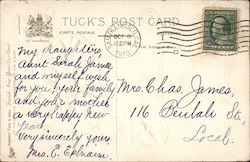 TUCK'S POST CARD
CARTE POSTALE
OCT 6
1910
My Daughters
Anne Sarah James
and myself wish
for you & your family
and your mother
a very happy new
Year
Very sincerely yours,
Mrs. E. Ephraim.
Mrs. Chas. James,
116 Beulah St.,
Local.